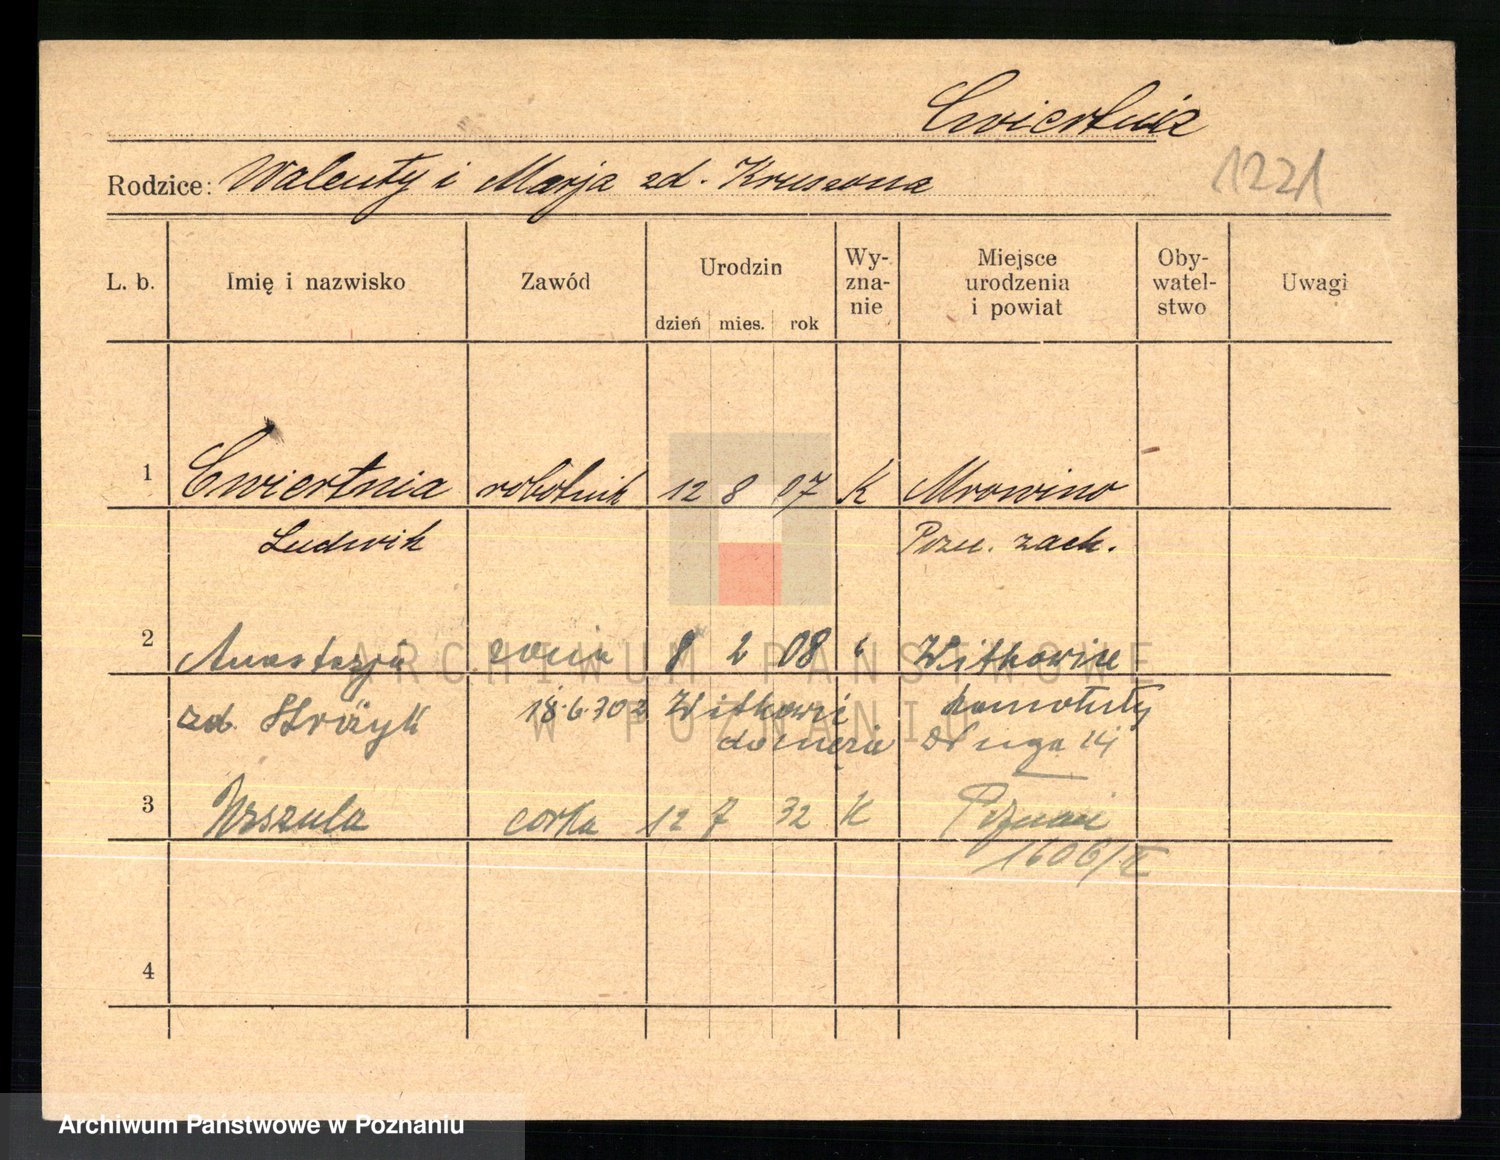 Cwiertnia
Rodzice: Walenty i Marja zd. Kruszona
1221
L. b. Imię i nazwisko Zawód Urodzin Wy- zna- nie Miejsce urodzenia i powiat Oby- watel- stwo Uwagi
dzień mies. rok
1 Cwiertnia robotnik 12 8 07 K Mrowino
Ludwik Pozn. zach.
2 Anastazja żona 8 2 08 " Witkowice
zd. Strózyk 18.6.30 z Witkowi
Szamotuły
Długa 14
3 Urszula corka 12 7 32 K Poznań
1606/II
4
ARCHIWUM PAŃSTWOWE
W POZNANIU
Archiwum Państwowe w Poznaniu